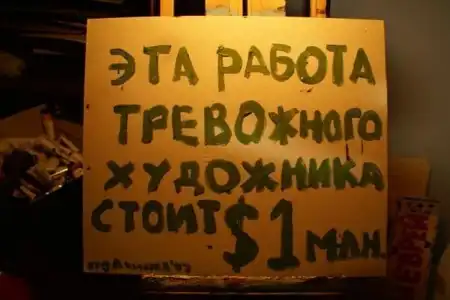 ЭТА РАБОТА
ТРЕВОЖНОГО
ХУДОЖНИКА
СТОИТ $1 МЛН.